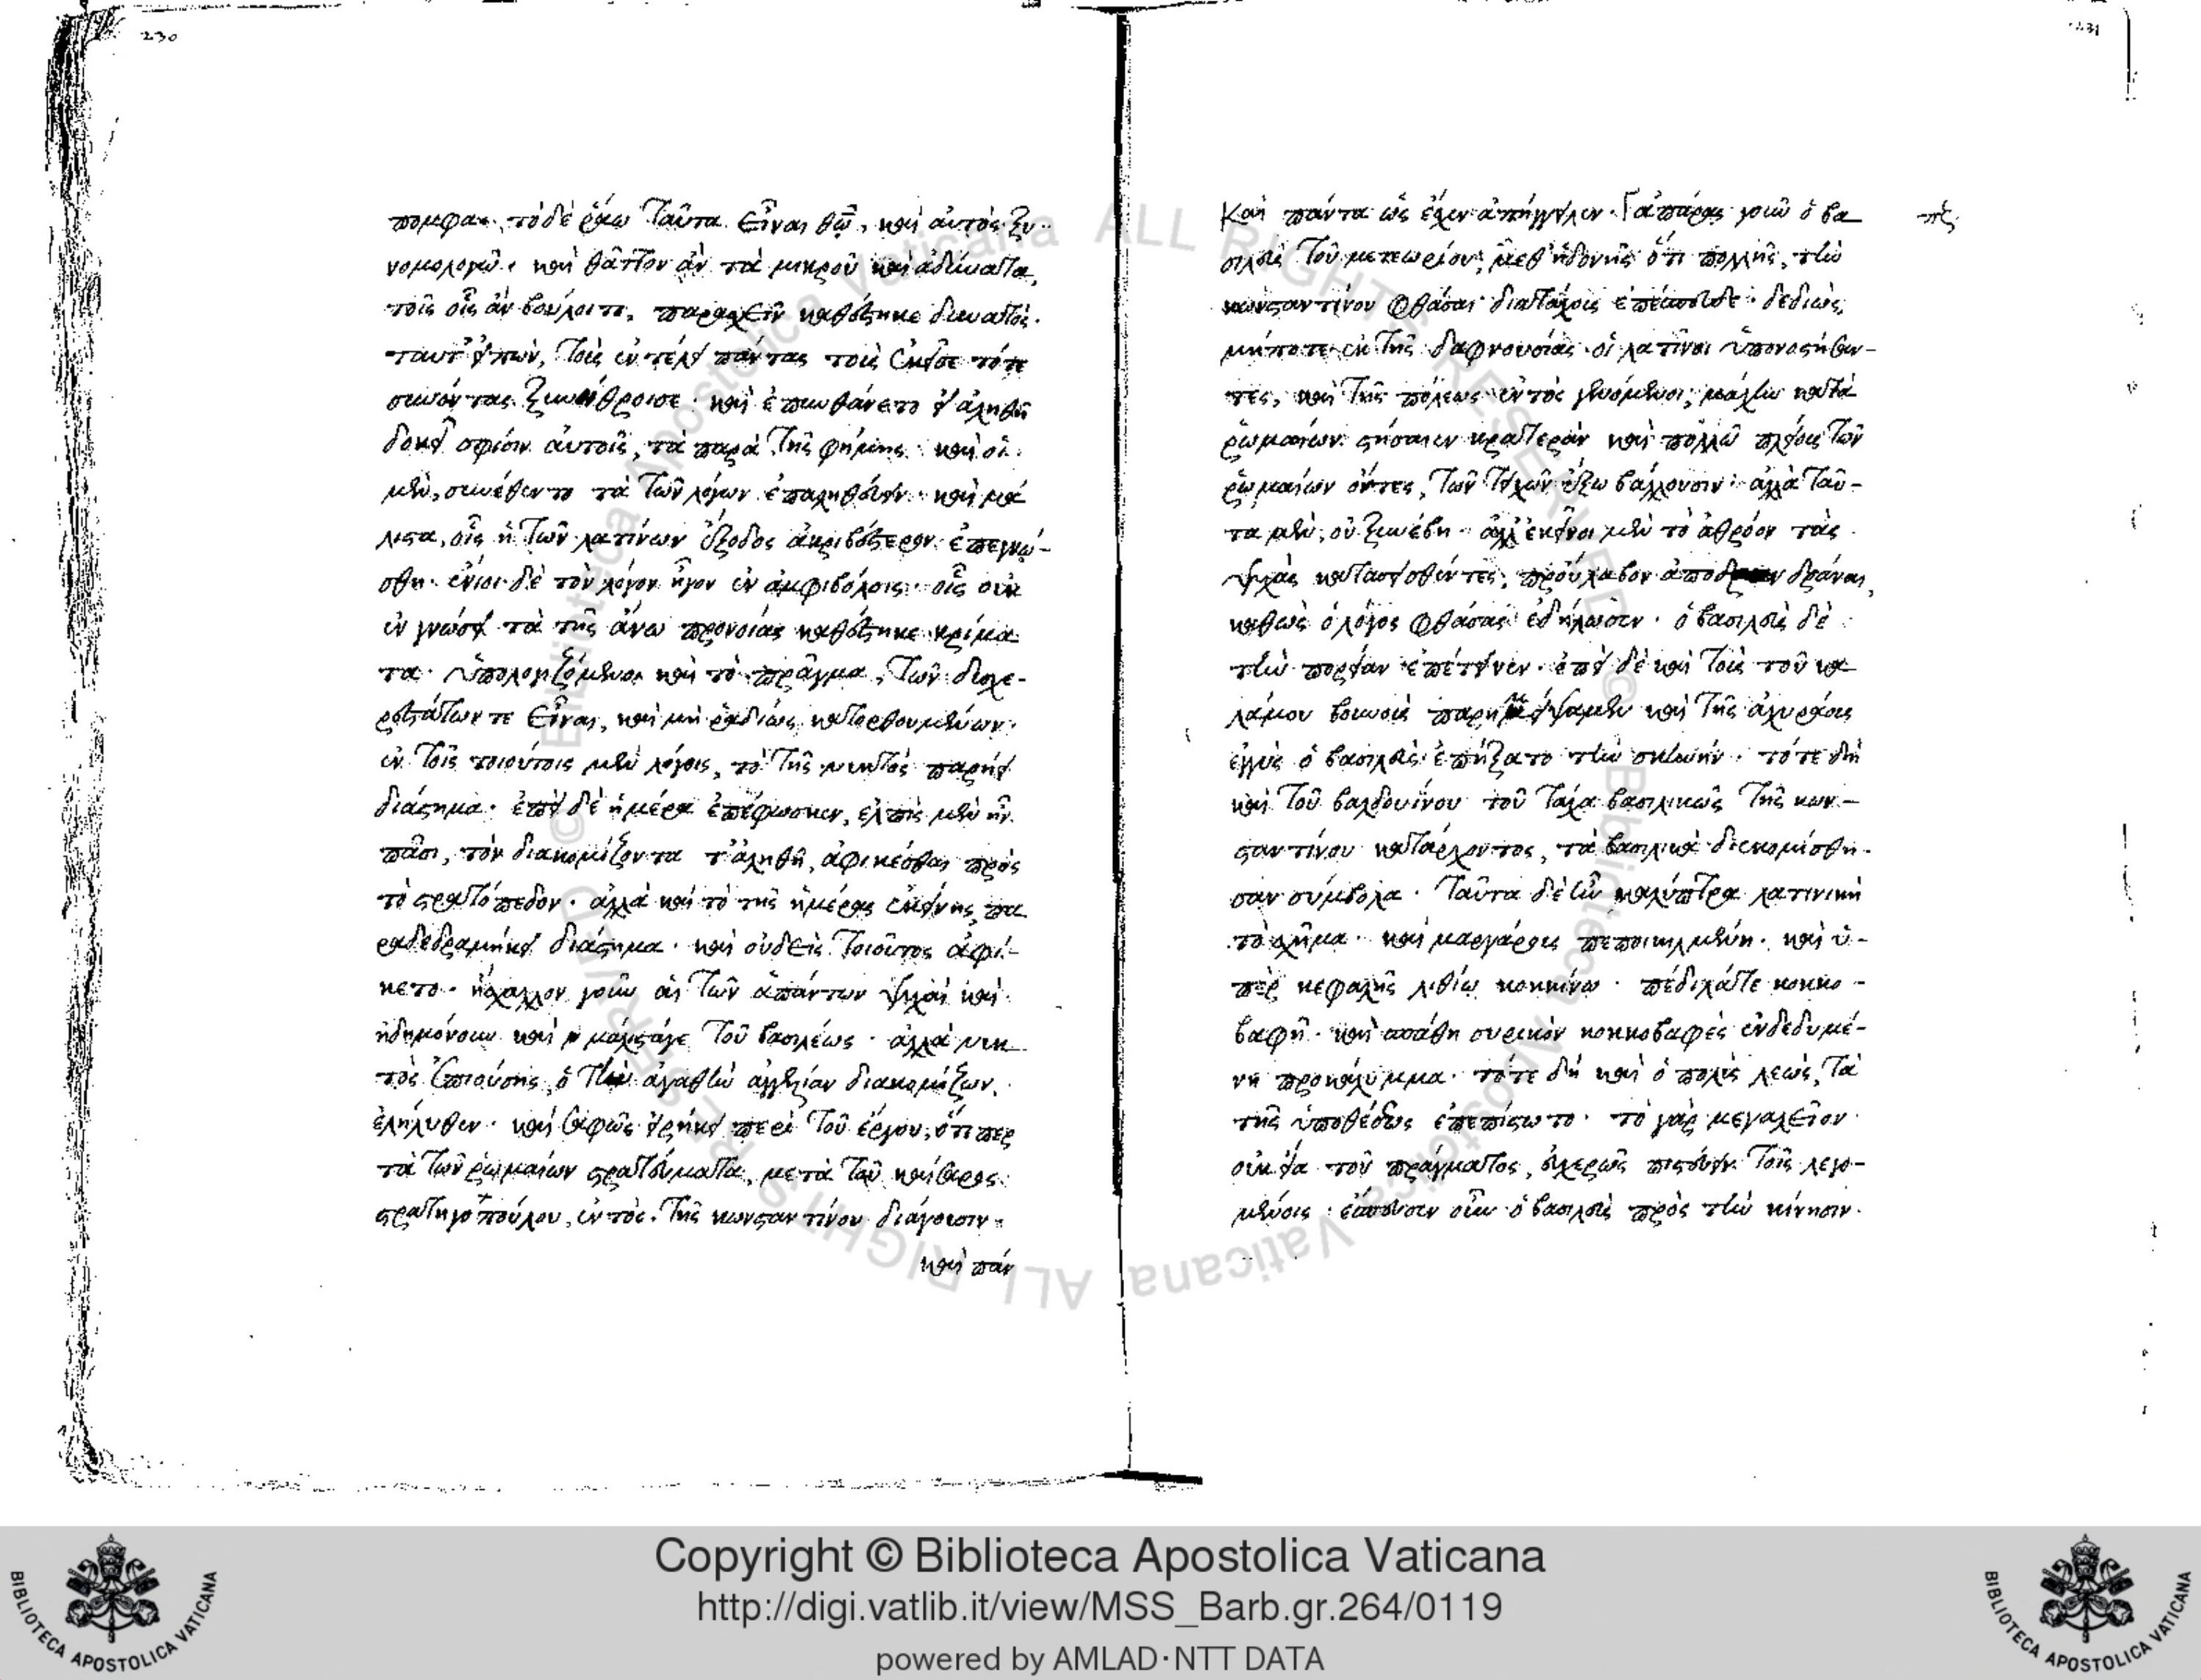 230
πομφας. τὸ δὲ ῥάω ταῦτα εἶναι θῶ, καὶ αὐτὸς ξυ-
νομολογῶ. καὶ θᾶττον ἂν τὰ μικροῦ καὶ ἀδύνατα,
τοῖς οἷς ἂν βούλοιτο, παρασχεῖν καθέστηκε δυνατός.
ταῦτ' εἰπών, τοὺς ἐν τέλει πάντας τοὺς ἐκεῖσε τότε
συνόντας ξυνήθροισε. καὶ ἐπυνθάνετο εἰ ἀληθῆ
δοκεῖ σφίσιν αὐτοῖς, τὰ παρὰ τῆς φήμης. καὶ οἱ
μὲν, συνέθεντο τὰ τῶν λόγων ἐπαληθεύειν. καὶ μά
λιστα, οἷς ἡ τῶν λατίνων ἔξοδος ἀκριβέστερον ἐπεγνώ-
σθη. ἔνιοι δὲ τὸν λόγον ἦγον ἐν ἀμφιβόλοις. οἷς οὐκ
ἐν γνώσει τὰ τῆς ἄνω προνοίας καθέστηκε κρίμα
τα. ὑπολογιζόμενοι καὶ τὸ πρᾶγμα, τῶν δυσχε-
ρεστάτων τε εἶναι, καὶ μὴ ῥαδίως κατορθουμένων.
ἐν τοῖς τοιούτοις μὲν λόγοις, τὸ τῆς νυκτὸς παρήει
διάστημα. ἐπεὶ δὲ ἡμέρα ἐπέφωσκεν, ἐλπὶς μὲν ἦν
πᾶσι, τὸν διακομίζοντα τἀληθῆ, ἀφικέσθαι πρὸς
τὸ στρατόπεδον. ἀλλὰ καὶ τὸ τῆς ἡμέρας ἐκείνης πα
ραδεδραμήκει διάστημα. καὶ οὐδεὶς τοιοῦτος ἀφί-
κετο. ἤσχαλλον γοῦν αἱ τῶν ἁπάντων ψυχαὶ καὶ
ἠδημόνουν καὶ μάλιστάγε τοῦ βασιλέως. ἀλλὰ νυκ
τὸς ἐπιούσης, ὁ τὴν ἀγαθὴν ἀγγελίαν διακομίζων,
ἐλήλυθεν. καὶ σαφῶς εἰρήκει περὶ τοῦ ἔργου, ὅτι περ
τὰ τῶν ῥωμαίων στρατεύματα, μετὰ τοῦ καίσαρος
στρατηγοπούλου, ἐντὸς τῆς κωνσταντίνου διάγουσιν.
καὶ πάν
231
Καὶ πάντα ὡς ἔχεν ἀπήγγειλεν. ἀπάρας γοῦν ὁ βα
σιλεὺς τοῦ μετεωρίου, μεθ' ἡδονῆς ὅτι πολλῆς, τὴν
κωνσταντίνου φθάσαι διαταχέως ἐπέσπευδε. δεδιὼς,
μήποτε ἐκ τῆς δαφνουσίας οἱ λατῖνοι ὑπονοστήσαν-
τες, καὶ τῆς πόλεως ἐντὸς γενόμενοι, μάχην κατὰ
ῥωμαίων στήσαιεν κρατερὰν καὶ πολλῶ πλείους τῶν
ῥωμαίων ὄντες, τῶν τειχῶν ἔξω βάλλουσιν. ἀλλὰ ταῦ-
τα μὲν, οὐ ξυνέβη. ἀλλ' ἐκεῖνοι μὲν τὸ ἀθρόον τὰς
ψυχὰς κατασεισθέντες, προύλαβον ἀποδράναι,
καθὼς ὁ λόγος φθάσας ἐδήλωσεν. ὁ βασιλεὺς δὲ
τὴν πορείαν ἐπέτεινεν. ἐπεὶ δὲ καὶ τοὺς τοῦ κα
λάμου βουνοὺς παρημείψαμεν καὶ τῆς ἀχυράους
ἐγγὺς ὁ βασιλεὺς ἐπήξατο τὴν σκηνήν. τότε δὴ
καὶ τοῦ βαλδουίνου τοῦ τάχα βασιλικῶς τῆς κων-
σταντίνου κατάρχοντος, τὰ βασιλικὰ διεκομίσθη-
σαν σύμβολα. ταῦτα δὲ ἦν καλύπτρα λατινικὴ
τὸ σχῆμα. καὶ μαργάροις πεποικιλμένη. καὶ ὑ-
πὲρ κεφαλῆς λιθίω κοκκίνω. πέδιλάτε κοκκο-
βαφῆ. καὶ σπάθη συρικὸν κοκκοβαφὲς ἐνδεδυμέ-
νη προκάλυμμα. τότε δὴ καὶ ὁ πολὺς λεὼς, τὰ
τῆς ὑποθέσεως ἐπεπίστωτο. τὸ γὰρ μεγαλεῖον
οὐκ εἴα τοῦ πράγματος, εὐχερῶς πιστεύειν τοῖς λεγο-
μένοις. ἔσπευσεν οὖν ὁ βασιλεὺς πρὸς τὴν κίνησιν.
Copyright © Biblioteca Apostolica Vaticana
http://digi.vatlib.it/view/MSS_Barb.gr.264/0119
powered by AMLAD·NTT DATA
BIBLIOTECA APOSTOLICA VATICANA
BIBLIOTECA APOSTOLICA VATICANA